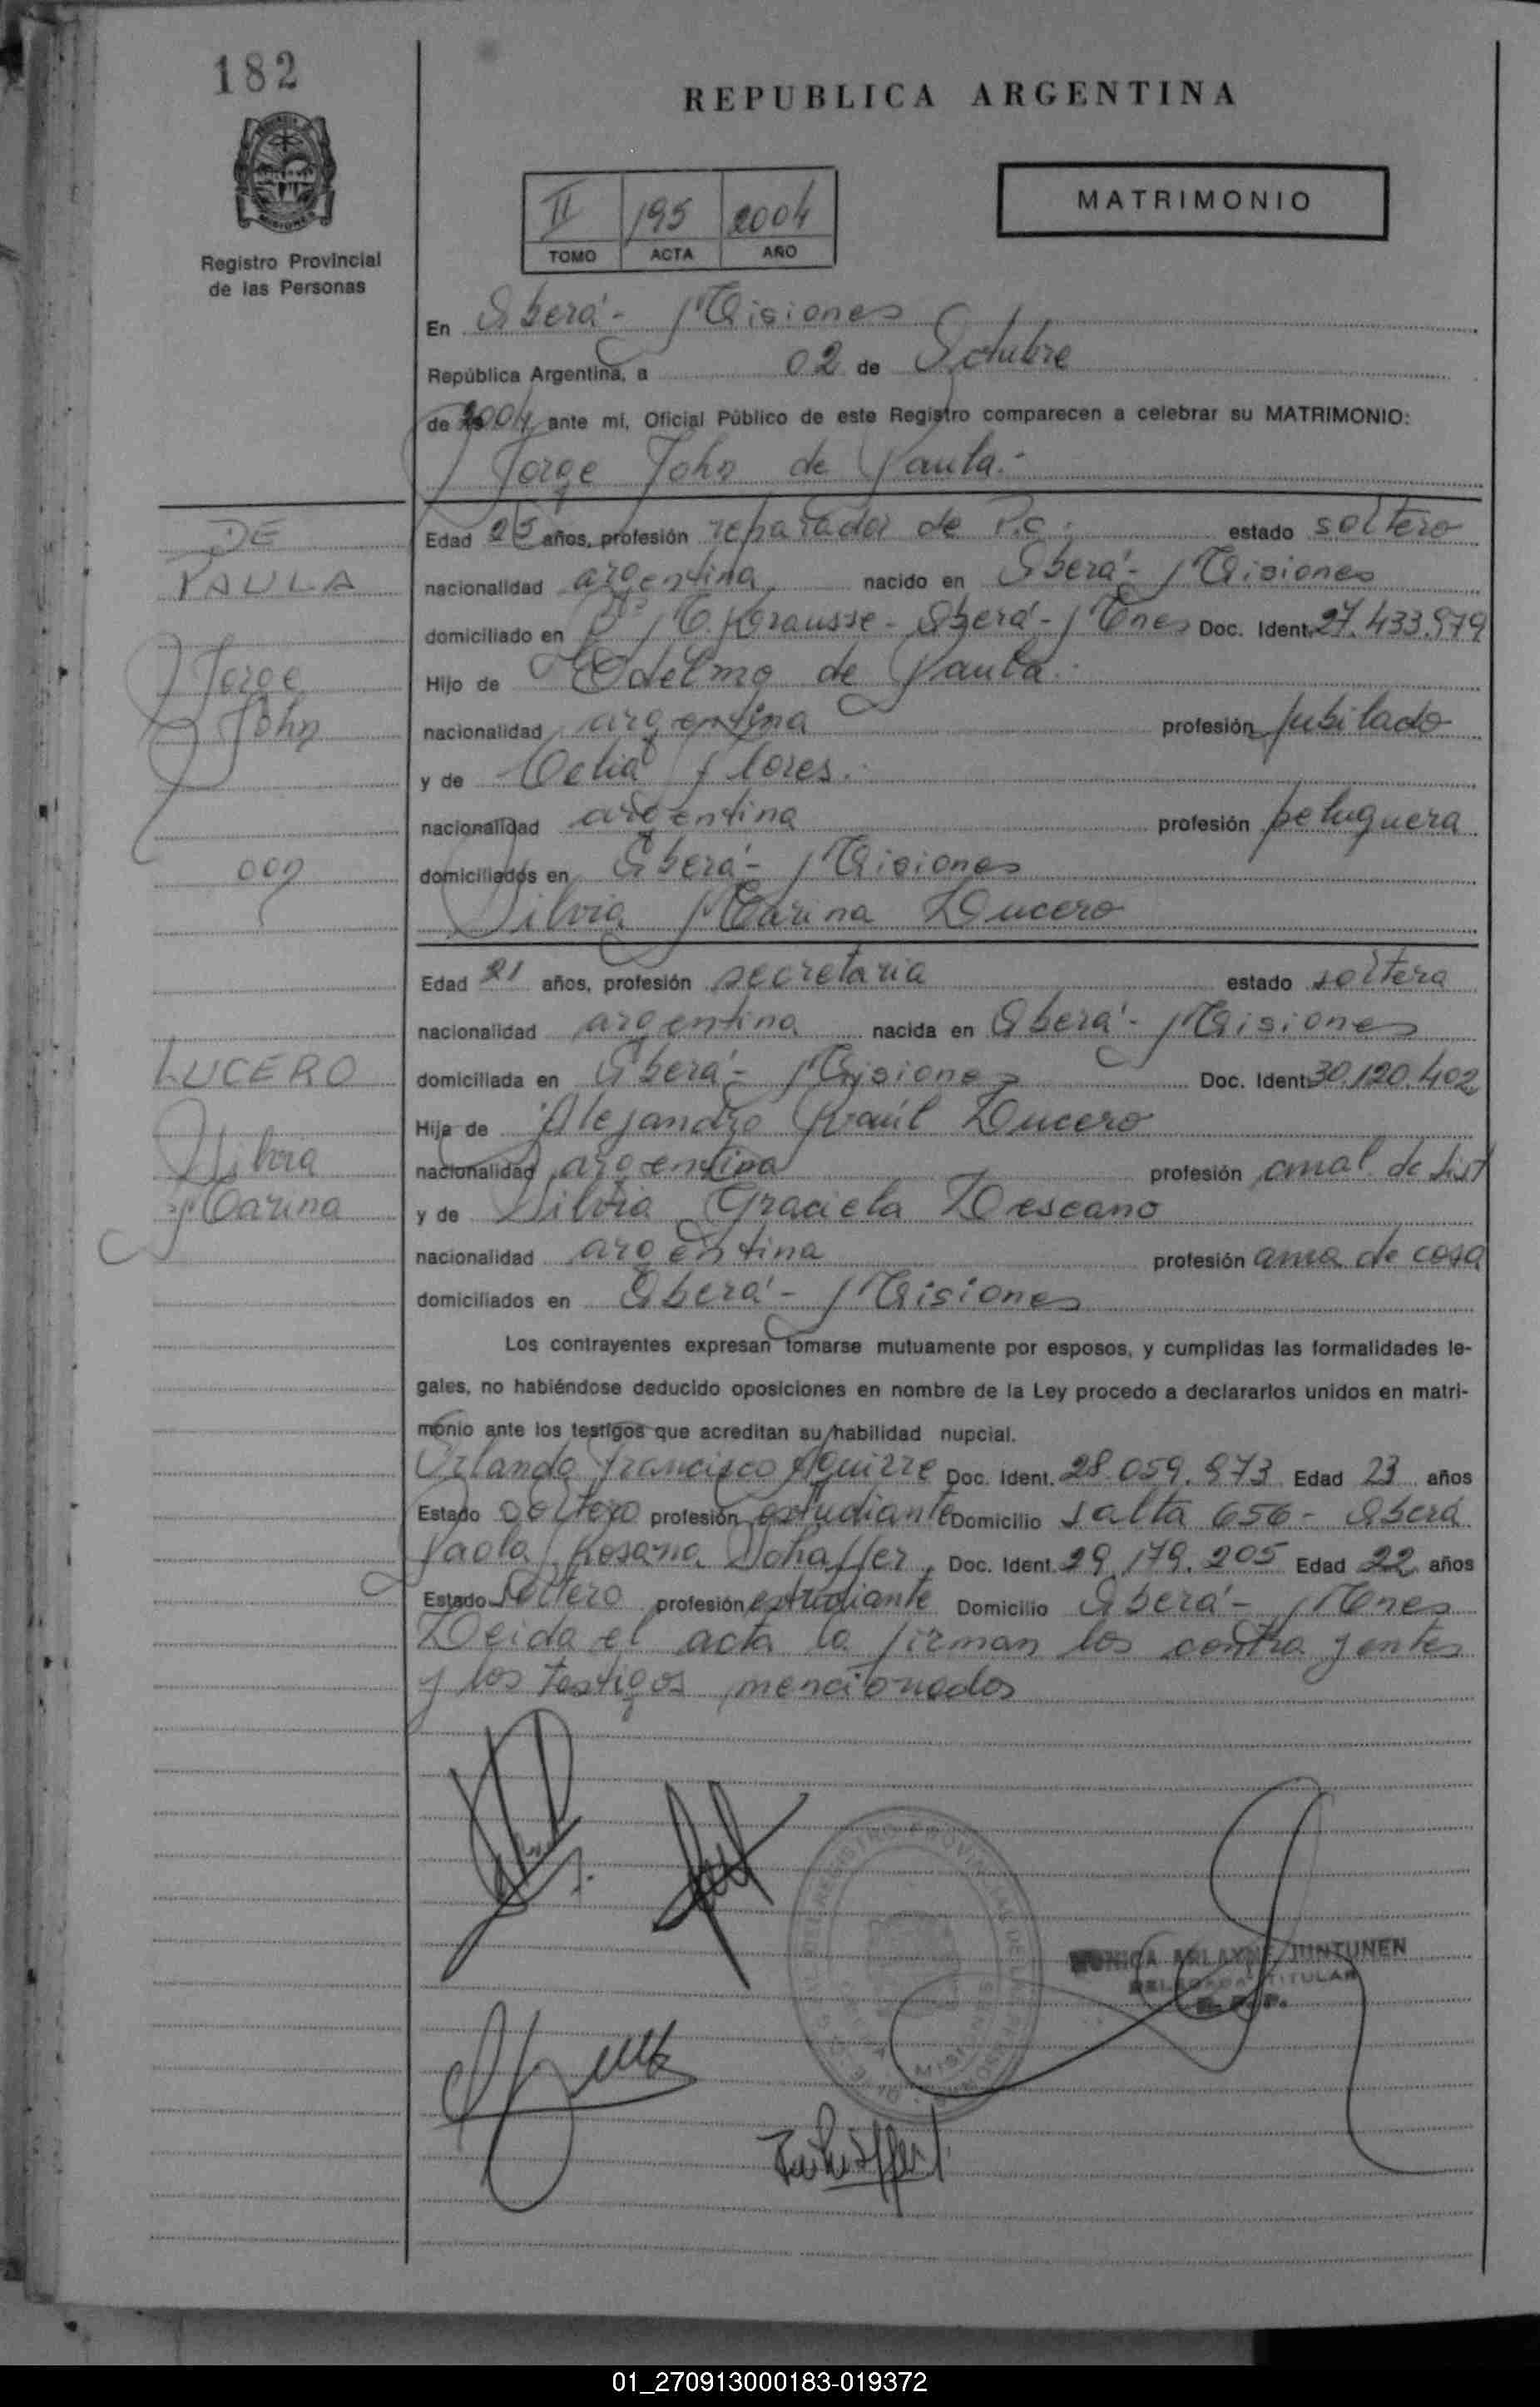 182
REPUBLICA ARGENTINA
MATRIMONIO
II 195 2004
TOMO ACTA AÑO
Registro Provincial
de las Personas
En Oberá - Misiones
República Argentina, a 02 de Octubre
de 2004 ante mí, Oficial Público de este Registro comparecen a celebrar su MATRIMONIO:
Jorge John de Paula.-
DE
PAULA
Jorge
John
con
Edad 25 años, profesión reparador de P.C. estado soltero
nacionalidad argentina nacido en Oberá - Misiones
domiciliado en Krausse - Oberá - Mnes Doc. Ident. 27.433.979
Hijo de Edelmo de Paula.
nacionalidad argentina profesión jubilado
y de Celia Flores.
nacionalidad argentina profesión peluquera
domiciliados en Oberá - Misiones
Silvia Marina Lucero
Edad 21 años, profesión secretaria estado soltera
nacionalidad argentina nacida en Oberá - Misiones
LUCERO
Silvia
Marina
domiciliada en Oberá - Misiones Doc. Ident. 30.120.402
Hija de Alejandro Raúl Lucero
nacionalidad argentina profesión anal. de Sist
y de Silvia Graciela Lescano
nacionalidad argentina profesión ama de casa
domiciliados en Oberá - Misiones
Los contrayentes expresan tomarse mutuamente por esposos, y cumplidas las formalidades le-
gales, no habiéndose deducido oposiciones en nombre de la Ley procedo a declararlos unidos en matri-
monio ante los testigos que acreditan su habilidad nupcial.
Orlando Francisco Aguirre Doc. Ident. 28.059.973 Edad 23 años
Estado soltero profesión estudiante Domicilio Salta 656 - Oberá
Paola Rosana Schaffer Doc. Ident. 29.179.205 Edad 22 años
Estado soltero profesión estudiante Domicilio Oberá - Mnes
Leida el acta la firman los contrayentes
y los testigos mencionados
MONICA ARLAYNE JUNTUNEN
DELEGADA TITULAR
R. P. P.
01_270913000183-019372